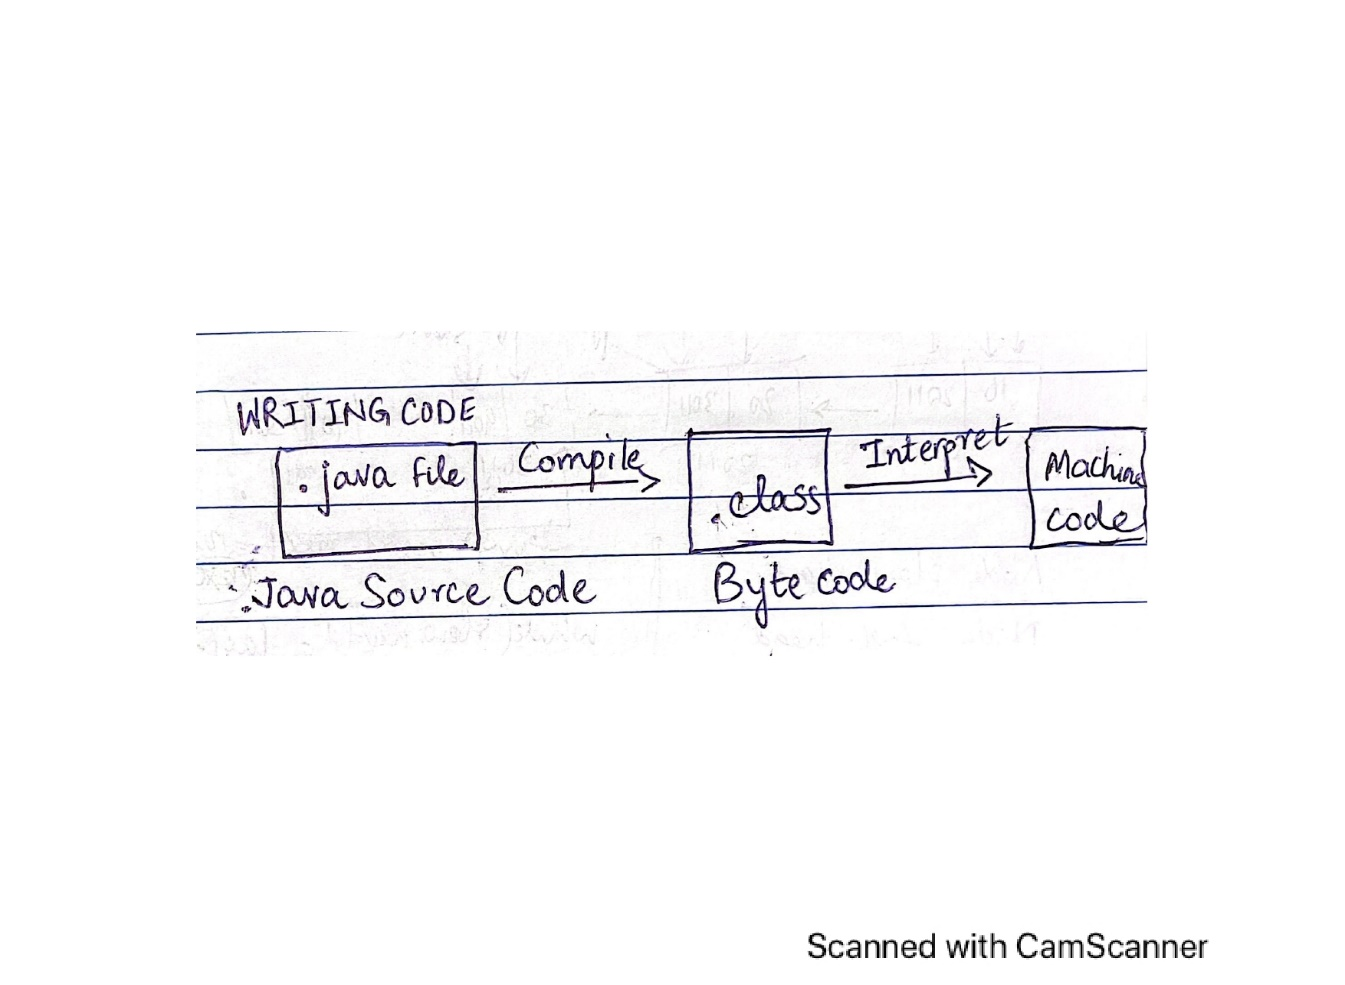 WRITING CODE
.java file Compile .class Interpret Machine code
Java Source Code Byte code
Scanned with CamScanner